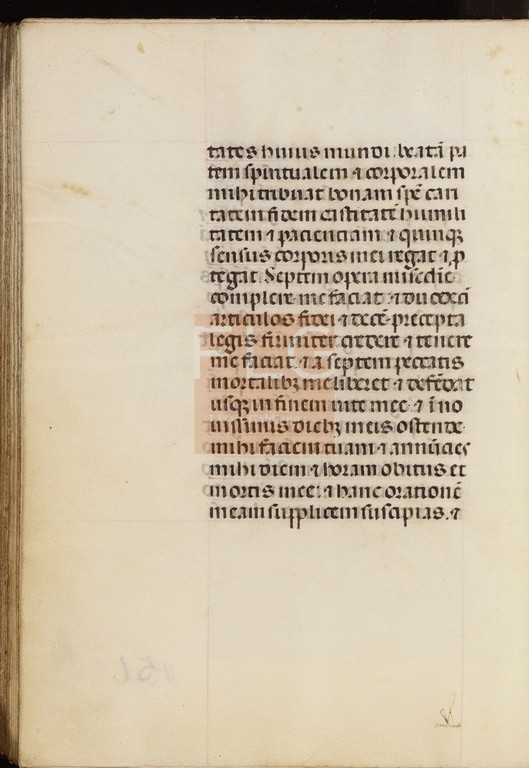 tates huius mundi. beatā pa
tem spiritualem ⁊ corporalem
mihi tribuat bonam spē cari
tatem fidem castitatē humili
tatem ⁊ pacienciam ⁊ quinqꝫ
sensus corporis mei regat ⁊ ꝓ
tegat. Septem opera mīe
complere me faciat. ⁊ duodecī
articulos fidei ⁊ decē precepta
legis firmiter credere ⁊ tenere
me faciat. ⁊ a septem peccatis
mortalibꝫ me liberet ⁊ defēdat
usqꝫ in finem vite mee ⁊ ī no
uissimis diebꝫ meis ostende
mihi faciem tuam ⁊ annūcies
mihi diem ⁊ horam obitus et
mortis mee. ⁊ hanc orationē
meam supplicem suscipias. ⁊